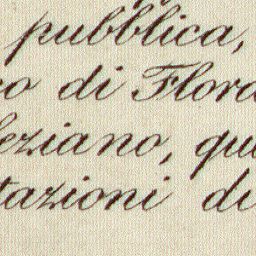 pubblica,
co di Flora
leziano, qu
tazioni di